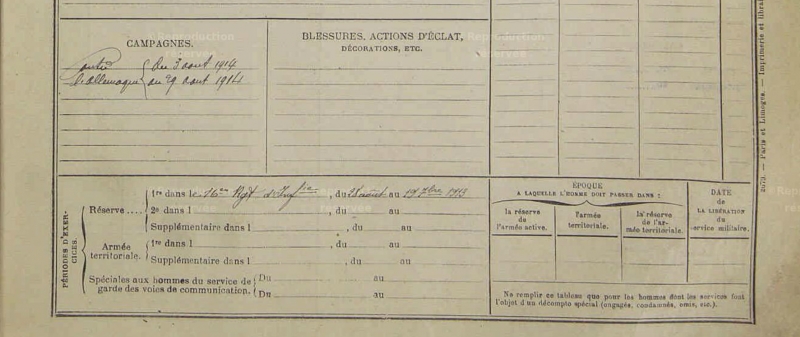 CAMPAGNES.
BLESSURES, ACTIONS D'ÉCLAT,
DÉCORATIONS, ETC.
Contre { du 3 aout 1914
l'allemagne { au 29 aout 1914
PÉRIODES D'EXERCICES.
Réserve....
1re dans le 16me Rgt d'Infie, du 28 aout au 19 7bre 1913
2e dans l , du au
Supplémentaire dans l , du au
Armée territoriale.
1re dans l , du au
Supplémentaire dans l , du au
Spéciales aux hommes du service de garde des voies de communication.
Du au
Du au
ÉPOQUE
A LAQUELLE L'HOMME DOIT PASSER DANS :
la réserve de l'armée active.
l'armée territoriale.
la réserve de l'armée territoriale.
DATE
de
LA LIBÉRATION
du
service militaire.
Ne remplir ce tableau que pour les hommes dont les services font
l'objet d'un décompte spécial (engagés, condamnés, omis, etc.).
Paris et Limoges. — Imprimerie et librai
Reproduction
réservée